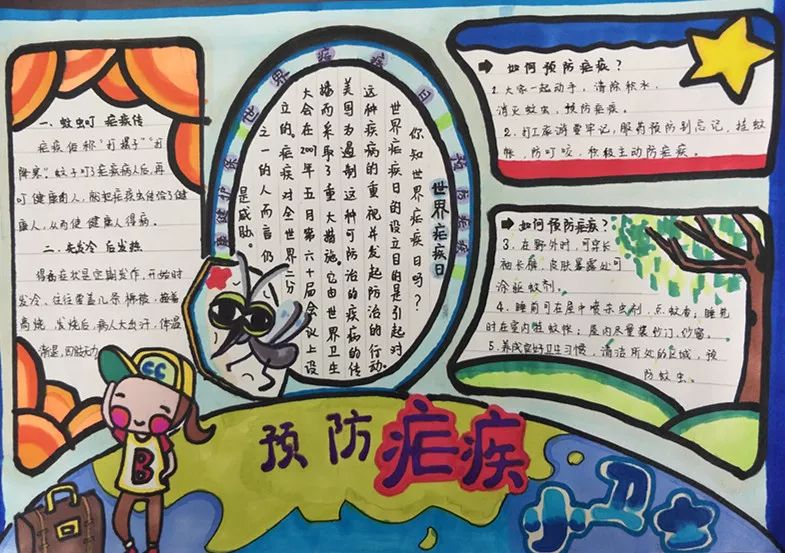 一、蚊虫叮 疟疾传
疟疾俗称"打摆子""打
脾寒"蚊子叮了疟疾病人后,再
叮健康的人,就把疟疾虫传给了健
康人,从而使健康人得病。
二、先发冷 后发热
症状是定期发作,开始时
发冷,往往覆盖几条棉被,接着
高烧,发烧后,病人大出汗,体温
渐退,四肢无力
保护健康
世界疟疾日
预防疟疾
世界疟疾日
你知世界疟疾日吗?
世界疟疾日的设立目的是引起对
这种疾病的重视并发起防治的行动。
美国为遏制这种可防治的疾病的传
播而采取了重大措施。它由世界卫生
大会在2007年五月第六十届会议上设
立的。疟疾对全世界二分
之一的人而言仍
是威胁。
如何预防疟疾?
1.大家一起动手,清除积水,
消灭蚊虫,预防疟疾。
2.打工旅游要牢记,服药预防别忘记,挂蚊
帐,防叮咬,积极主动防疟疾。
如何预防疟疾?
3.在野外时,可穿长
袖长裤,皮肤暴露处可
涂驱蚊剂。
4.睡前可在屋中喷杀虫剂,点蚊香;睡觉
时在室内挂蚊帐;屋内尽量装纱门、纱窗。
5.养成良好卫生习惯,清洁所处的区域,预
防蚊虫。
CC
B
预防疟疾
小卫士